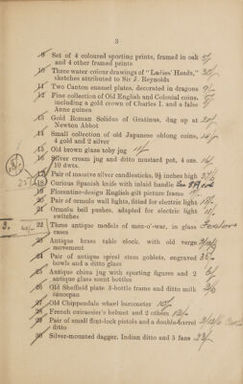 3
9 Set of 4 coloured sporting prints, framed in oak
and 4 other framed prints
10 Three water colour drawings of "Ladies' Heads,"
sketches attributed to Sir J. Reynolds
11 Two Canton enamel plates, decorated in dragons
12 Fine collection of Old English and Colonial coins,
including a gold crown of Charles I. and a false
Anne guinea
13 Gold Roman Solidus of Gratinus, dug up at
Newton Abbot
14 Small collection of old Japanese oblong coins,
4 gold and 2 silver
15 Old brown glass toby jug
16 Silver cream jug and ditto mustard pot, 4 ozs.
10 dwts.
17 Pair of massive silver candlesticks, 9½ inches high
18 Curious Spanish knife with inlaid handle
19 Florentine-design English gilt picture frame
20 Pair of ormolu wall lights, fitted for electric light
21 Ormolu bell pushes, adapted for electric light
switches
22 Three antique models of men-o'-war, in glass
cases
23 Antique brass table clock, with old verge
movement
24 Pair of antique spiral stem goblets, engraved
bowls and a ditto glass
25 Antique china jug with sporting figures and 2
antique glass scent bottles
26 Old Sheffield plate 3-bottle frame and ditto milk
saucepan
27 Old Chippendale wheel barometer
28 French cuirassier's helmet and 2 others
29 Pair of small flint-lock pistols and a double-barrel
ditto
30 Silver-mounted dagger, Indian ditto and 3 fans